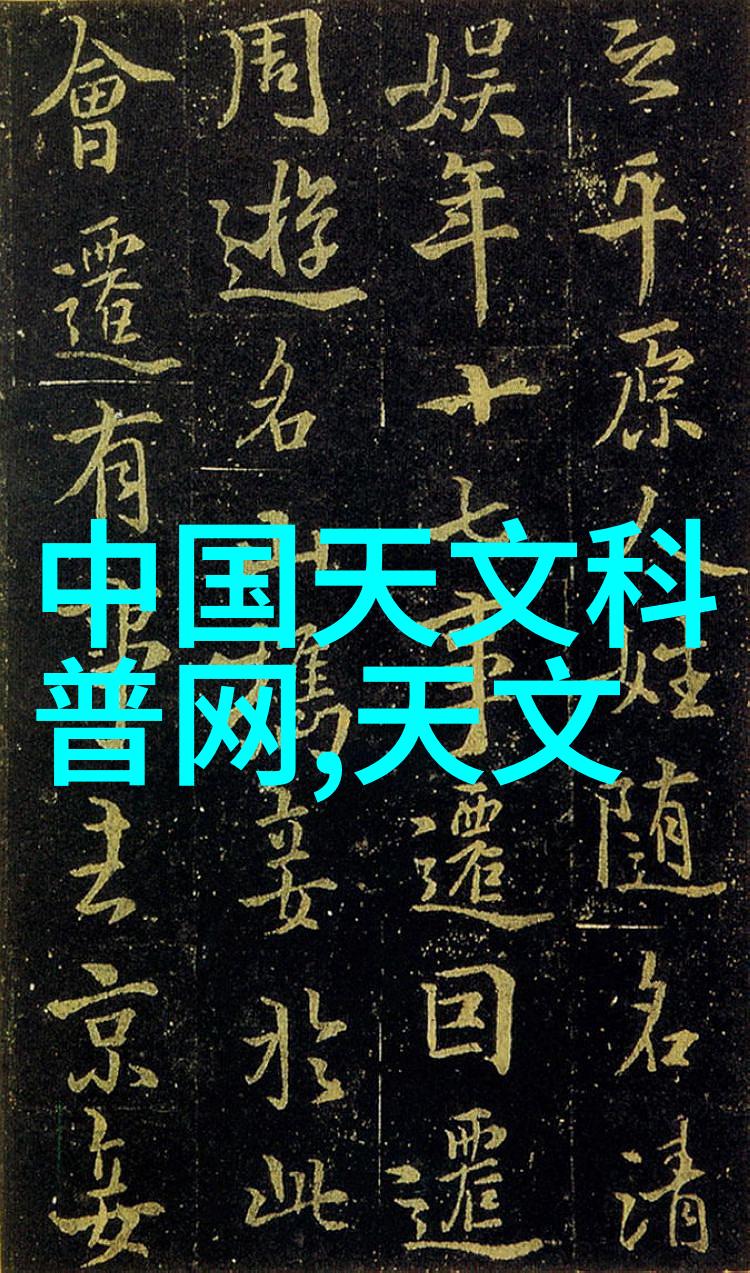 之平原人姓随名清
娱年十七事遷回遷
周遊名山擕妾於此
會遷有事去京妾
中国天文科
普网,天文